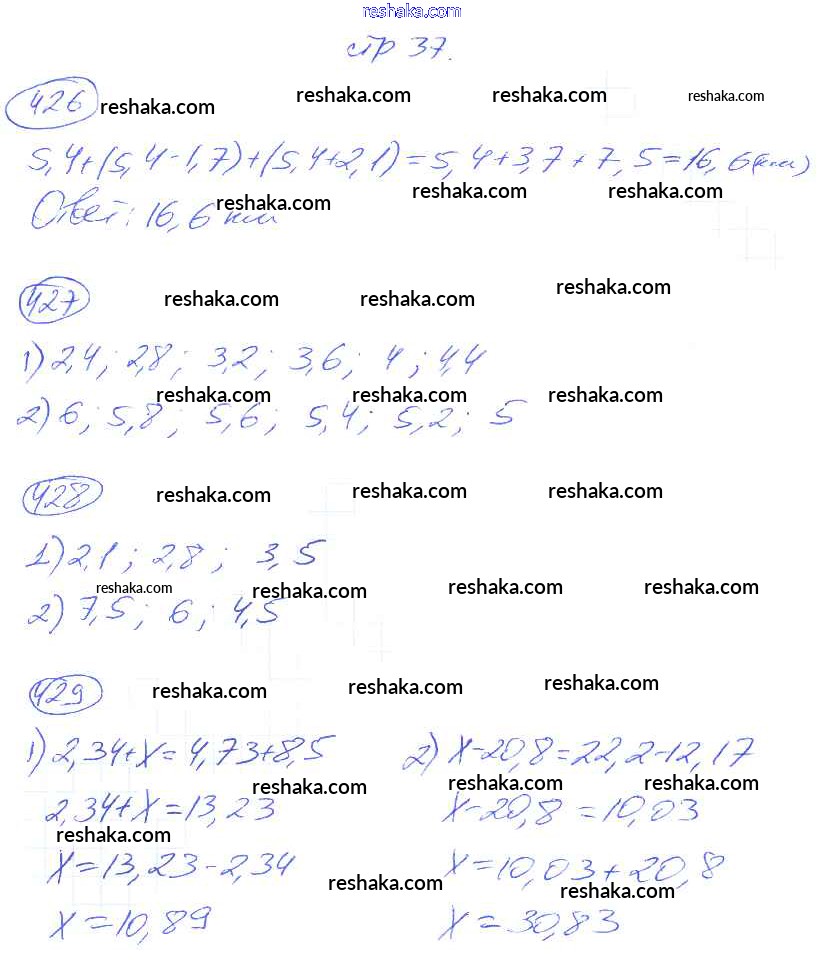 reshaka.com
стр 37.
426 reshaka.com reshaka.com reshaka.com reshaka.com
5,4+(5,4-1,7)+(5,4+2,1)=5,4+3,7+7,5=16,6(км)
reshaka.com reshaka.com reshaka.com
Ответ: 16,6 км
427 reshaka.com reshaka.com reshaka.com
1) 2,4; 2,8; 3,2; 3,6; 4; 4,4
reshaka.com reshaka.com reshaka.com
2) 6; 5,8; 5,6; 5,4; 5,2; 5
428 reshaka.com reshaka.com reshaka.com
1) 2,1; 2,8; 3,5
reshaka.com reshaka.com reshaka.com reshaka.com
2) 7,5; 6; 4,5
429 reshaka.com reshaka.com reshaka.com
1) 2,34+x=4,73+8,5 2) x-20,8=22,2-12,17
reshaka.com reshaka.com reshaka.com
2,34+x=13,23 x-20,8=10,03
reshaka.com
x=13,23-2,34 x=10,03+20,8
reshaka.com reshaka.com
x=10,89 x=30,83